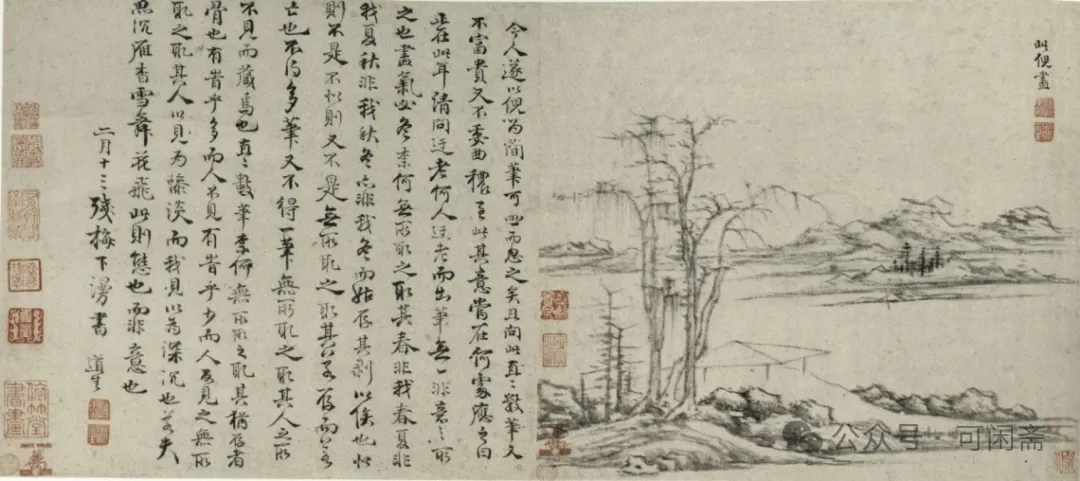 此倪畫
今人遂以倪為簡筆可而忽之矣且问此直〻數筆又
不富貴又不委曲穠至此其意嘗在何處應之曰
正在此耳請问迂老何人迂老而出筆無一非意之所
之也畫氣必冬柰何無所取之取其春非我春夏非
我夏秋非我秋冬亦非我冬而姑存其剥以俟也似
則不是不似則又不是無所取之取其若存而若
亡也不得多筆又不得一筆無所取之取其人之所
不見而藏焉也直〻數筆柰何無所取之取其猶存者
骨也有省乎多而人不見有省乎少而人多見之無所
取之取其人以見為慘淡而我見以為深沉也若夫
思沉雁杳雪舞花飛此則態也而非意也
二月十三殘梅下漫書 道生
公众号·可闲斋